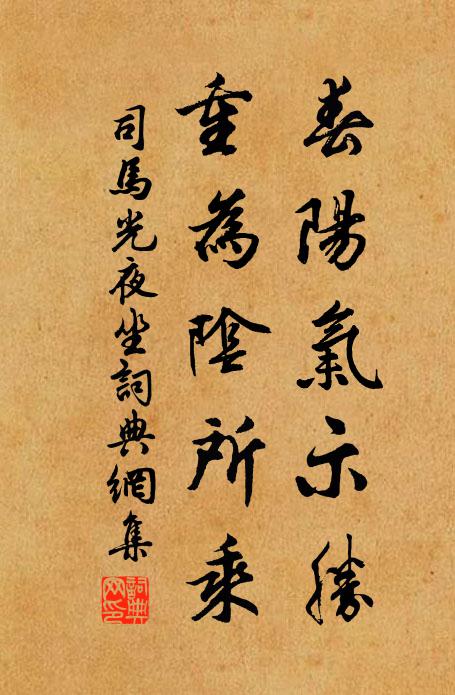 春陽氣示勝
重為陰所乘
司馬光夜坐詞典網集
詞典網印